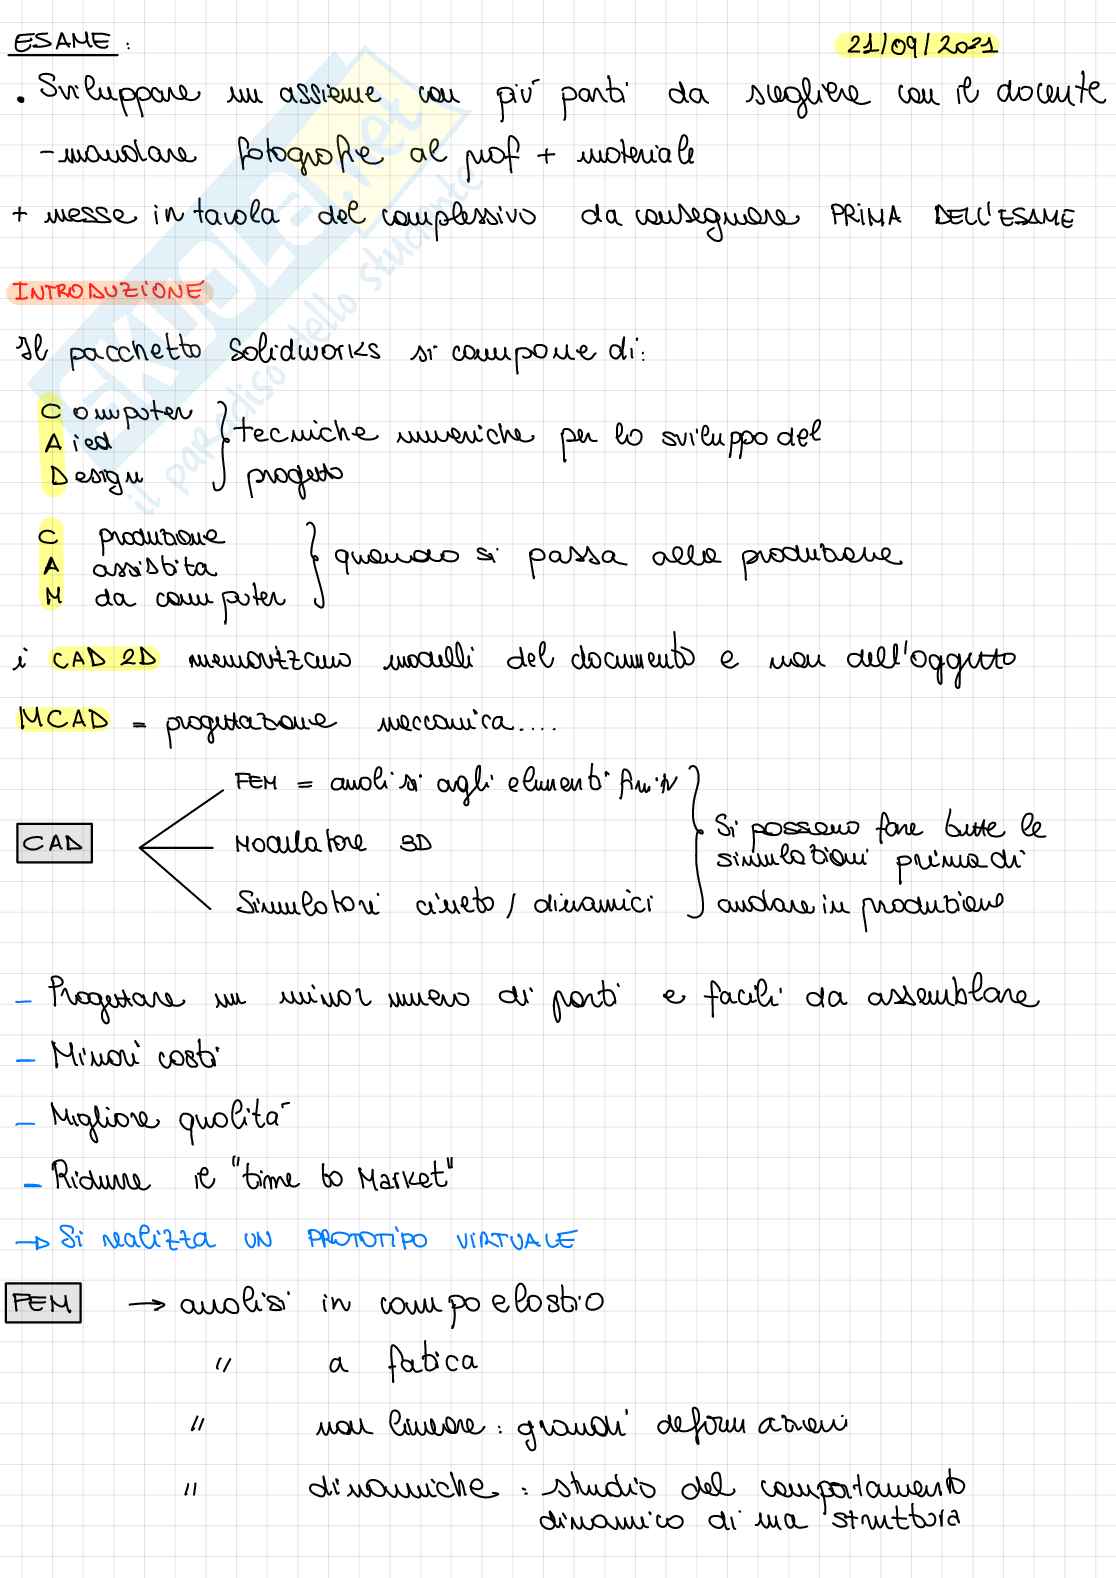 ESAME:
21/09/2021
• Sviluppare un assieme con più parti da scegliere con il docente
- mandare fotografie al prof + materiale
+ messe in tavola del complessivo da consegnare PRIMA DELL'ESAME
INTRODUZIONE
Il pacchetto Solidworks si compone di:
Computer
Aied
Design
tecniche numeriche per lo sviluppo del
progetto
C produzione
A assistita
M da computer
quando si passa alla produzione
i CAD 2D memorizzano modelli del documento e non dell'oggetto
MCAD = progettazione meccanica....
CAD
FEM = analisi agli elementi finiti
Modellatore 3D
Simulatori cineto/dinamici
Si possono fare tutte le
simulazioni prima di
andare in produzione
- Progettare un minor numero di parti e facili da assemblare
- Minori costi
- Migliore qualità
- Ridurre il "time to Market"
→ Si realizza UN PROTOTIPO VIRTUALE
FEM → analisi in campo elastico
" a fatica
" non lineare: grandi deformazioni
" dinamiche: studio del comportamento
dinamico di una struttura
SKUOLA.net
il paradiso dello studente